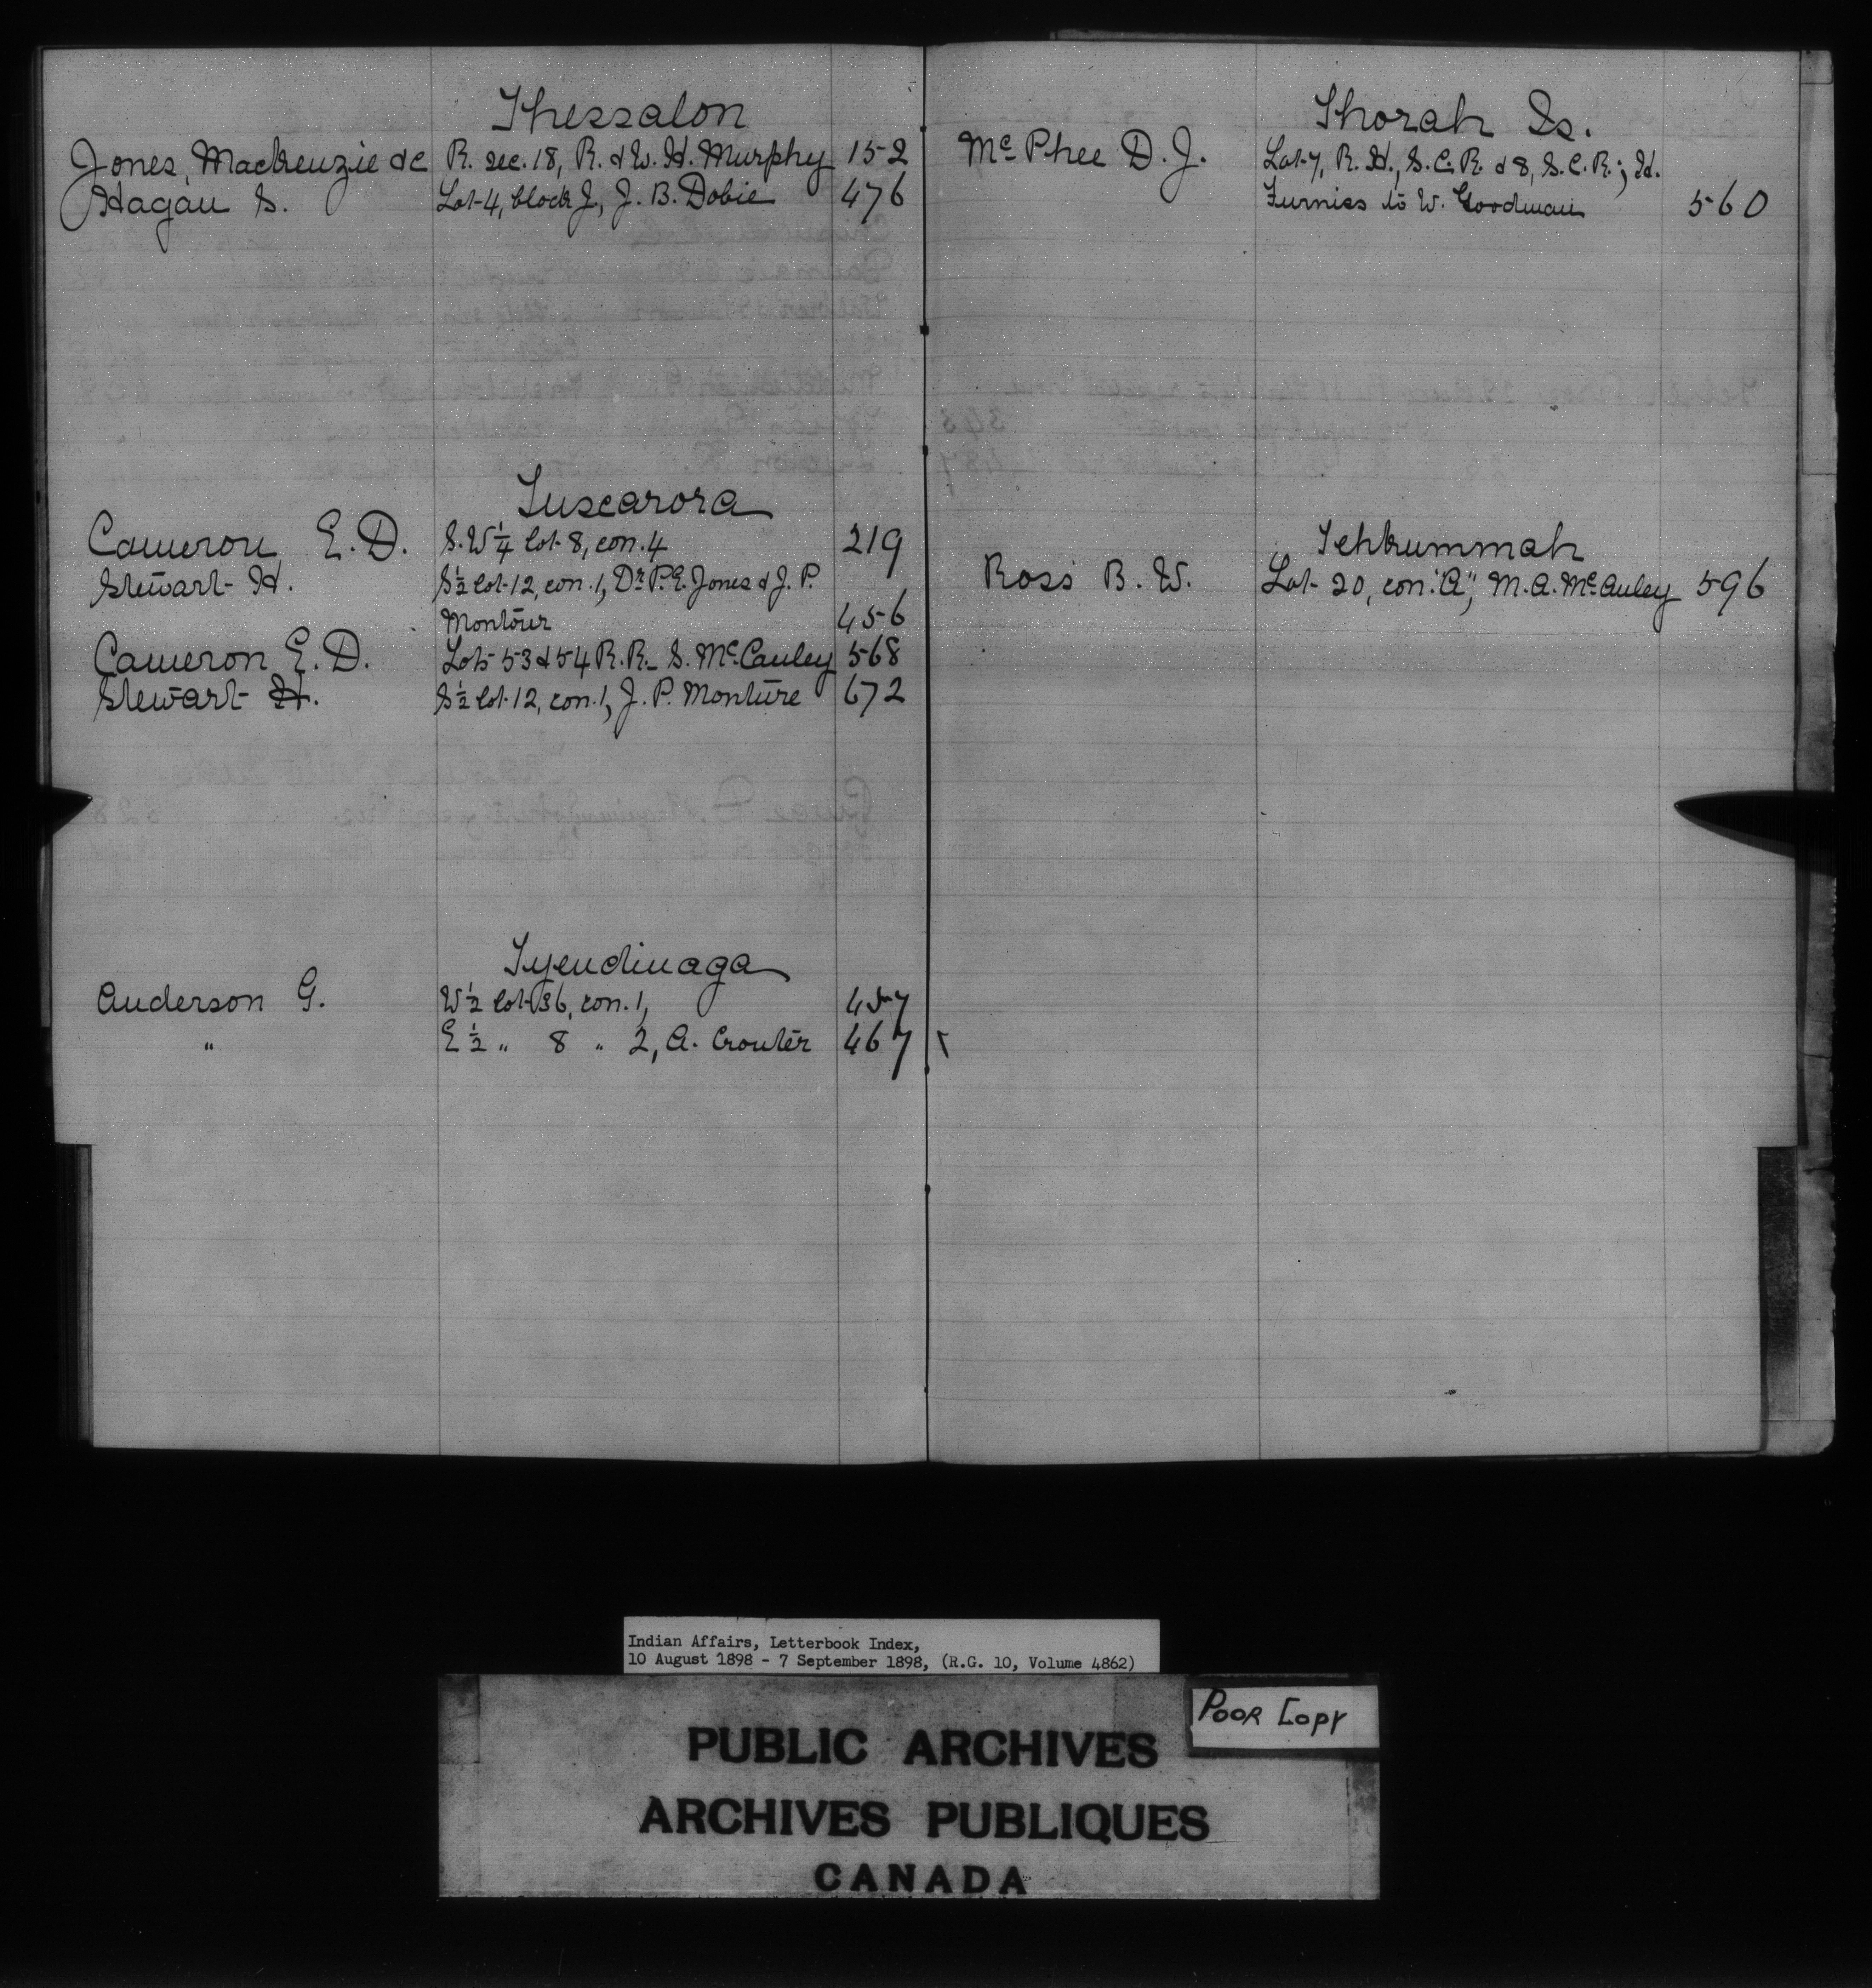 Thessalon
Jones, Mackenzie &c R. sec. 18, R. & W. H. Murphy 152
Hagan S. Lot 4, block J., J. B. Dobie 476
Tuscarora
Cameron E. D. S.W 1/4 lot 8, con. 4 219
Stewart H. S 1/2 lot 12, con. 1, Dr. P. E. Jones & J. P.
Montour 456
Cameron E. D. Lots 53 & 54 R.R. S. McCauley 568
Stewart H. S 1/2 lot 12, con. 1, J. P. Monture 672
Tyendinaga
Anderson G. W 1/2 lot 36, con. 1, 457
" E 1/2 " 8 " 2, A. Crouter 467
Thorah Is.
McPhee D. J. Lot 7, R. H., S. C. R. & 8, S. C. R.; H.
Furniss to W. Goodman 560
Tehkummah
Ross B. W. Lot 20, con. "A", M. A. McAuley 596
Indian Affairs, Letterbook Index,
10 August 1898 - 7 September 1898, (R.G. 10, Volume 4862)
Poor Copy
PUBLIC ARCHIVES
ARCHIVES PUBLIQUES
CANADA